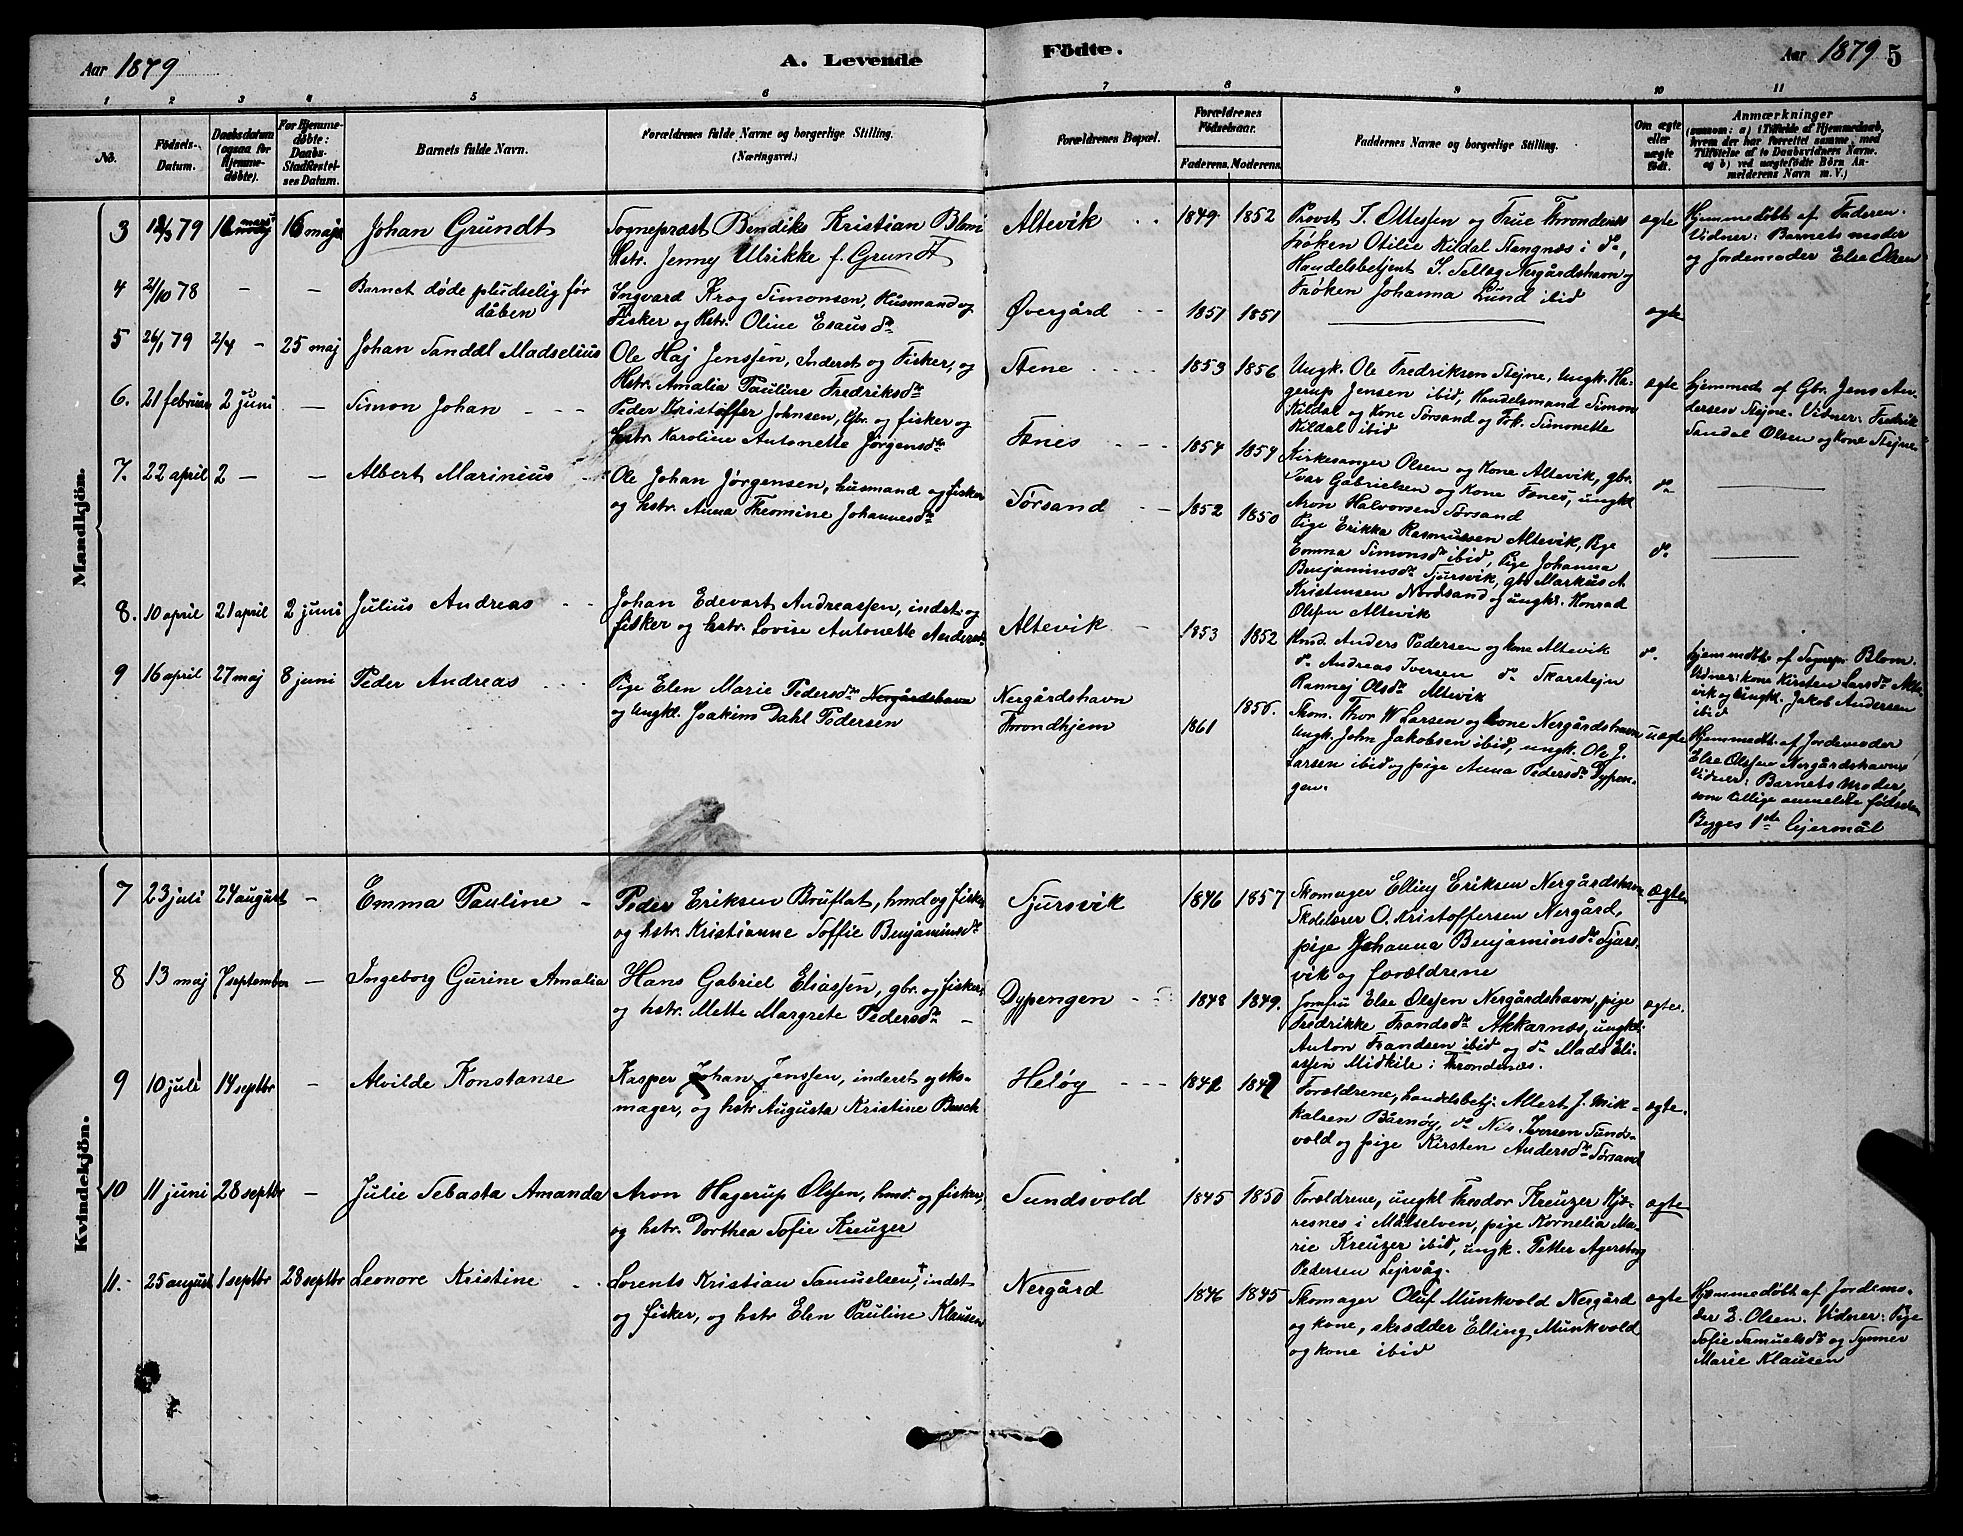 Aar 1879
A. Levende
Födte.
Aar 1879
5
1 2 3 4 5 6 7 8 9 10 11
No.
Födsels-Datum.
Daabsdatum (ogsaa for Hjemme-döbte).
For Hjemme-döbte: Daabs-Stadfæstel-ses Datum.
Barnets fulde Navn.
Forældrenes fulde Navne og borgerlige Stilling.
(Næringsvei.)
Forældrenes Bopæl.
Forældrenes Födselsaar.
Faderens. Moderens.
Faddernes Navne og borgerlige Stilling.
Om ægte eller uægte födt.
Anmærkninger
(saasom: a) i Tilfælde af Hjemmedaab, hvem der har forrettet samme, med Tilföielse af to Daabsvidners Navne, og b) ved uægtefödte Börn An-melderens Navn m. V.)
Mandkjön.
3 12/3 79 16 maj Johan Grundt
Sognepræst Bendiks Kristian Blom
Hstr. Jenny Ulrikke f. Grundt
Altevik 1849 1852
Provst I. Ottesen og Frue Throndenes
Frøken Otilie Kildal Stangnæs i do,
Handelsbetjent S. Selleg Nergårdshavn og
Frøken Johanna Lund ibid
ægte
Hjemmedøbt af Faderen.
Vidner: Barnets moder
og Jordemoder Else Olsen
4 21/10 78 — — Barnet døde pludselig før
dåben
Ingvard Krog Simonsen, Husmand og
Fisker og Hstr. Oline Esausdr
Øvergård 1851 1851
ægte
5 26/1 79 2/4 — 25 maj Johan Sanddl Madselius
Ole Haj Jenssen, Inderst og Fisker, og
Hstr. Amalia Pauline Fredriksdr
Stene 1853 1856
Ungk. Ole Fredriksen Stejne, Ungk. Ha-
gerup Jensen ibid, Handelsmand Simon
Kildal og Kone Sørsand og Frk. Simonette
Kildal ibid
ægte
hjemmed. af Gbr. Jens An-
dersen Stejne. Vidner: Fredrik
Sandal Olsen og kone Stejne
6. 21 februar 2 juni — Simon Johan
Peder Kristoffer Johnsen, Gbr. og fisker og
hstr. Karoline Antonette Jørgensdr
Fænes 1854 1854
Kirkesanger Olsen og Kone Altevik, gbr.
Ivar Gabrielsen og Kone Fænes, ungkl
Aron Halvorsen Sørsand
do
7. 22 april 2 — — Albert Marinius
Ole Johan Jørgensen, husmand og fisker
og hstr. Anna Theomine Johannesdr
Sørsand 1852 1850
Pige Erikka Rasmussen Altevik, Pige
Emma Simonsdr ibid, Pige Johanna
Benjaminsdr Sjursvik, gbr Markus A.
Kristensen Nordsand og ungkr. Konrad
Olsen Altevik
do
8. 10 april 21 april 2 juni Julius Andreas
Johan Edevart Andreassen, indst. og
fisker og hstr. Lovise Antonette Andersdr
Altevik 1853 1852
Hmd. Anders Pedersen og kone Altevik
do Andreas Iversen do Skarstejn
Rannej Olsdr Altevik
do
hjemmedøbt af Sognepr. Blom.
Vidner: kone Kirsten Larsdr Alte-
vik og Ungkl. Jakob Andersen
ibid
9 16 april 27 maj 8 juni Peder Andreas
Pige Elen Marie Pedersdr Nergårdshavn
og Ungkl. Joakim Dahl Pedersen
Nergårdshavn
Trondhjem 1861 1856.
Skom. Thor W Larsen og kone Nergårdshavn
Ungk. John Jakobsen ibid, ungk. Ole J.
Larsen ibid og pige Anna Pedersdr Dypen-
gen.
uægte
Hjemmedbt. af Jordemoder
Else Olsen Nergårdshavn,
Vidner: Barnets Moder,
som tillige anmeldte fødselen
Begges 1ste Lejermål
Kvindekjön.
7 23 juli 24 august — Emma Pauline
Peder Eriksen Bruflat, hmd og fisker
og hstr. Kristianne Soffie Benjaminsdr
Sjursvik 1846 1857
Skomager Elling Eriksen Nergårdshavn
Skolelærer O. Kristoffersen Nergård,
pige Johanna Benjaminsdr Sjurs-
vik og forældrene
ægte
8 13 maj 7 september — Ingeborg Gurine Amalia
Hans Gabriel Eliassen, gbr. og fisker,
og hstr. Mette Margrete Pedersdr
Dypengen 1848 1849.
Jomfru Else Olsen Nergårdshavn, pige
Fredrikke Frandsdr Akkarnæs, ungkl.
Anton Frandsen ibid og do Mads Eli-
assen Midkile i Throndenæs.
ægte.
9 10 juli 14 septbr — Alvilde Konstanse
Kasper Johan Jenssen, inderst og sko-
mager, og hstr Augusta Kristine Busch
Heløy 1842 1842
Forældrene, handelsbetj. Albert J. Mik-
kalsen Bårnøy, do Nils Iversen Sunds-
vold og pige Kirsten Andersdr Sørsand
ægte.
10 11 juni 28 septbr — Julie Sebasta Amanda
Aron Hagerup Olsen, hmd. og fisker,
og hstr. Dorthea Sofie Kreuzer
Sundsvold 1845 1850
Forældrene, ungkl Theodor Kreuzer Kjæ-
resnes i Målselven, pige Kornelia Ma-
rie Kreuzer ibid, ungk. Petter Agersborg
Pedersen Lejrvåg.
ægte
11. 25 august 1 septbr 28 septbr Leonore Kristine
Lorents Kristian Samuelsen,+ indst
og fisker, og hstr Elen Pauline Klausen
Nergård 1846 1845
Skomager Oluf Munkvold Nergård
og kone, skrædder Elling Munkvold
og kone ibid
ægte
Hjemmedøbt af Jordemo-
der E. Olsen. Vidner: Pige
Sofie Samuelsdr og Synner
Marie Klausen